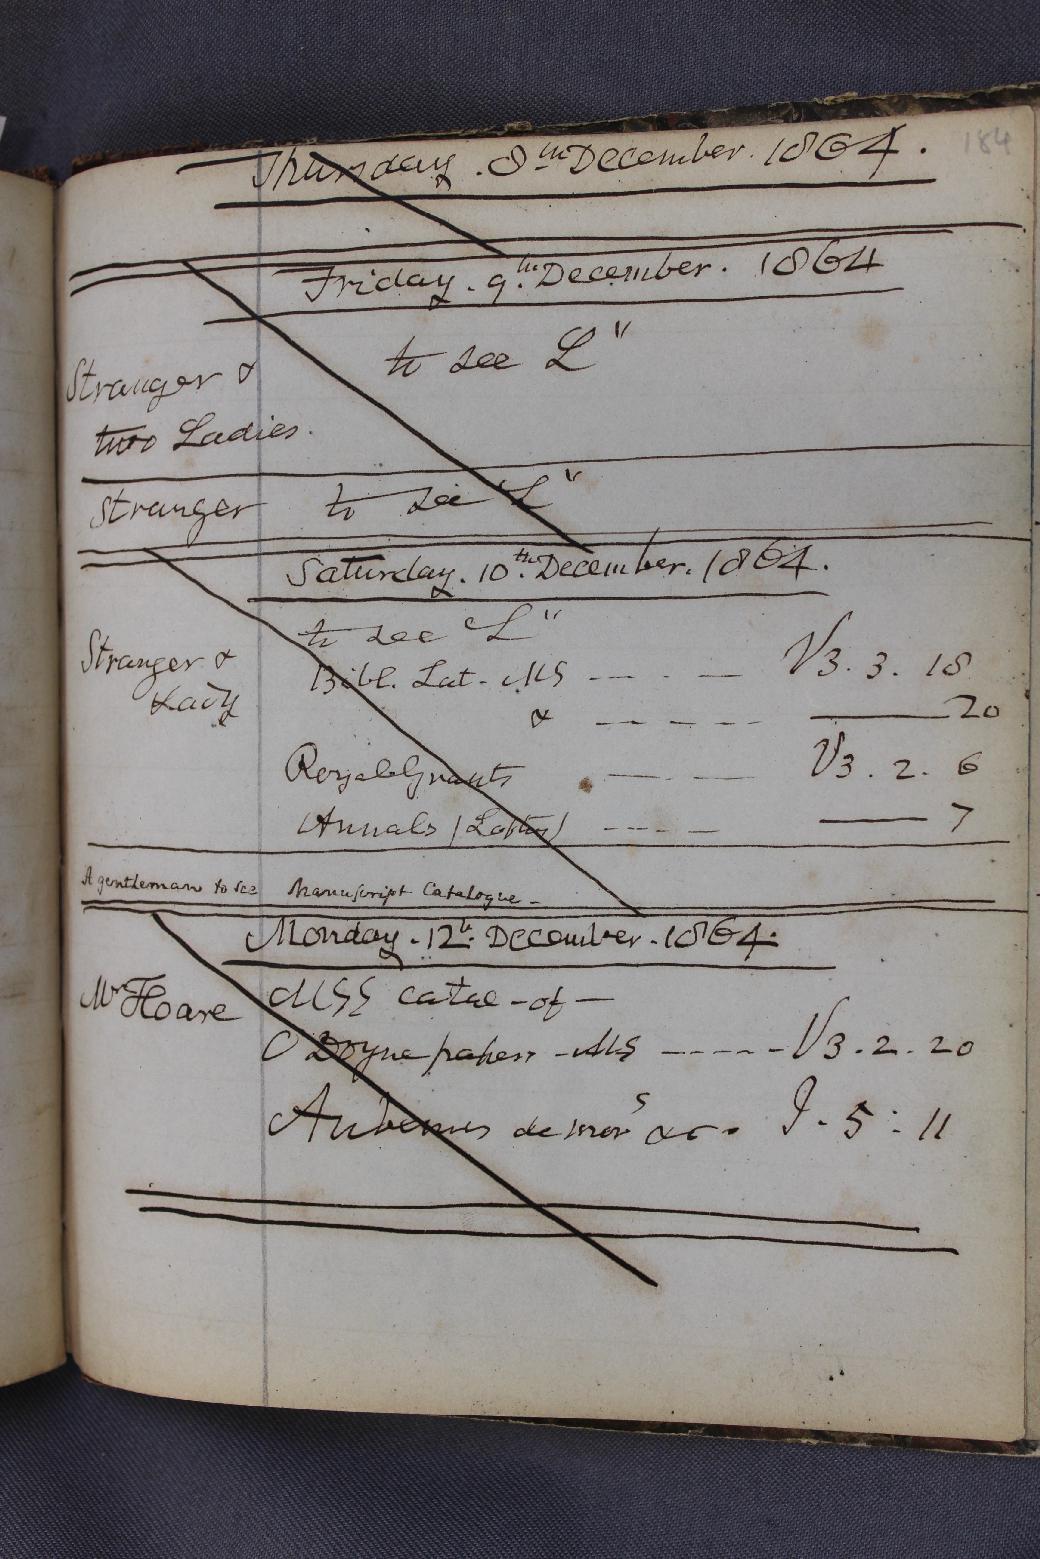 184
Thursday. 8th December. 1864.
Friday. 9th. December. 1864
Stranger & to see L"
two Ladies.
Stranger to see "L"
Saturday. 10th. December. 1864.
to see "L"
Stranger & Bibl. Lat. MS --- V3. 3. 18
Lady & ---- 20
Royal Grants --- V3. 2. 6
Annals (Loftus) ---- 7
A gentleman to see Manuscript Catalogue -
Monday. 12th. December. 1864.
Mr Hoare MSS catae - of -
O Doyne papers - MS ----- V3. 2. 20
de mors &c. I. 5: 11